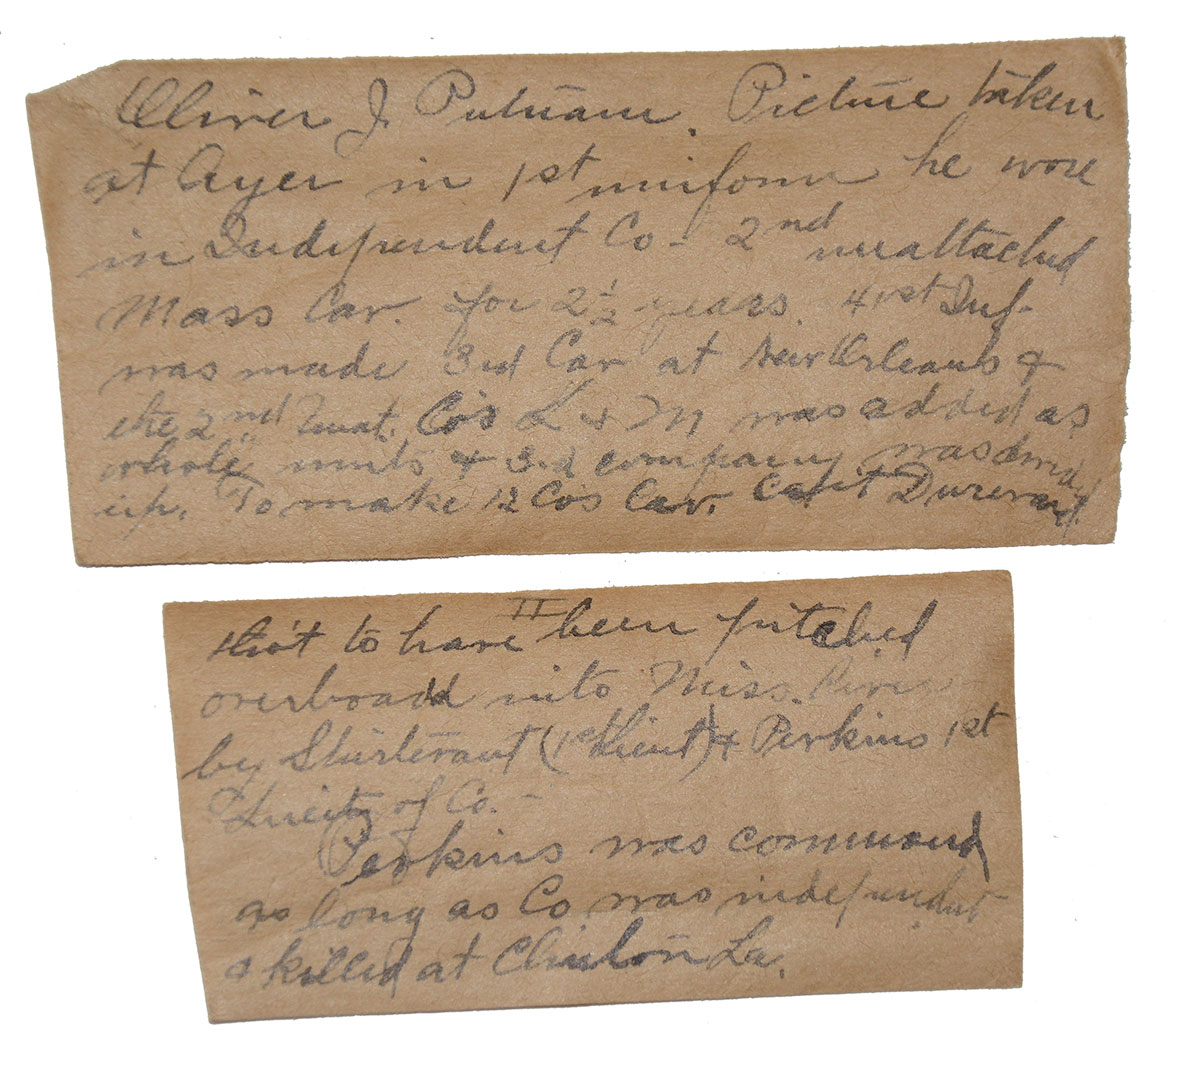 Oliver J. Putnam. Picture taken
at Ayer in 1st uniform he wore
in Independent Co - 2nd unattached
Mass Cav. for 2½ years. 41st Inf.
was made 3rd Cav at New Orleans &
the 2nd Unat. Co's L & M was added as
whole units & 3rd company was divided
up. To make 12 Co's Cav. Capt Durivard.
II
tho't to have been pitched
overboard into Miss. River -
by Sturtevant (1st Lieut) & Perkins 1st
of Co. -
Perkins was command
as long as Co was independent
& killed at Clinton La.